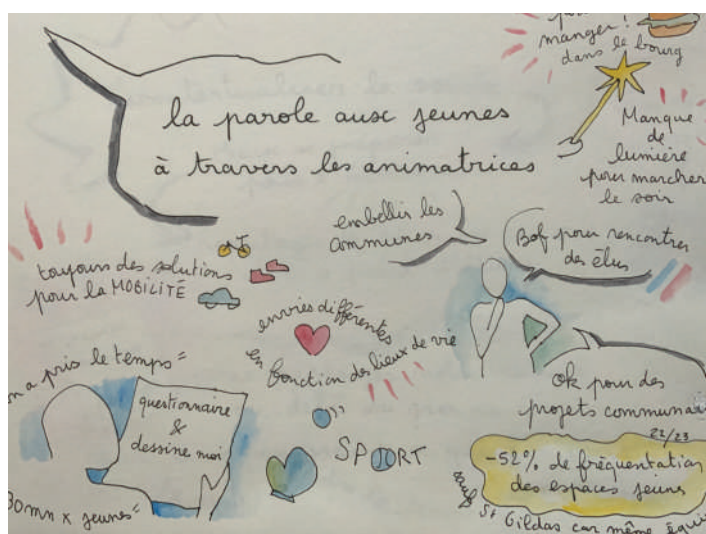 la parole aux jeunes
à travers les animatrices
manger !
dans le bourg
Manque
de
lumière
pour marcher
le soir
embellir les
communes
Bof pour rencontrer
des élus
toujours des solutions
pour la MOBILITÉ
envies différentes
en fonction des lieux de vie
on a pris le temps"
questionnaire
&
dessine moi
30mn x jeunes"
SPORT
ok pour des
projets communau
22/23
-52% de fréquentation
des espaces jeunes
sauf St Gildas car même équi